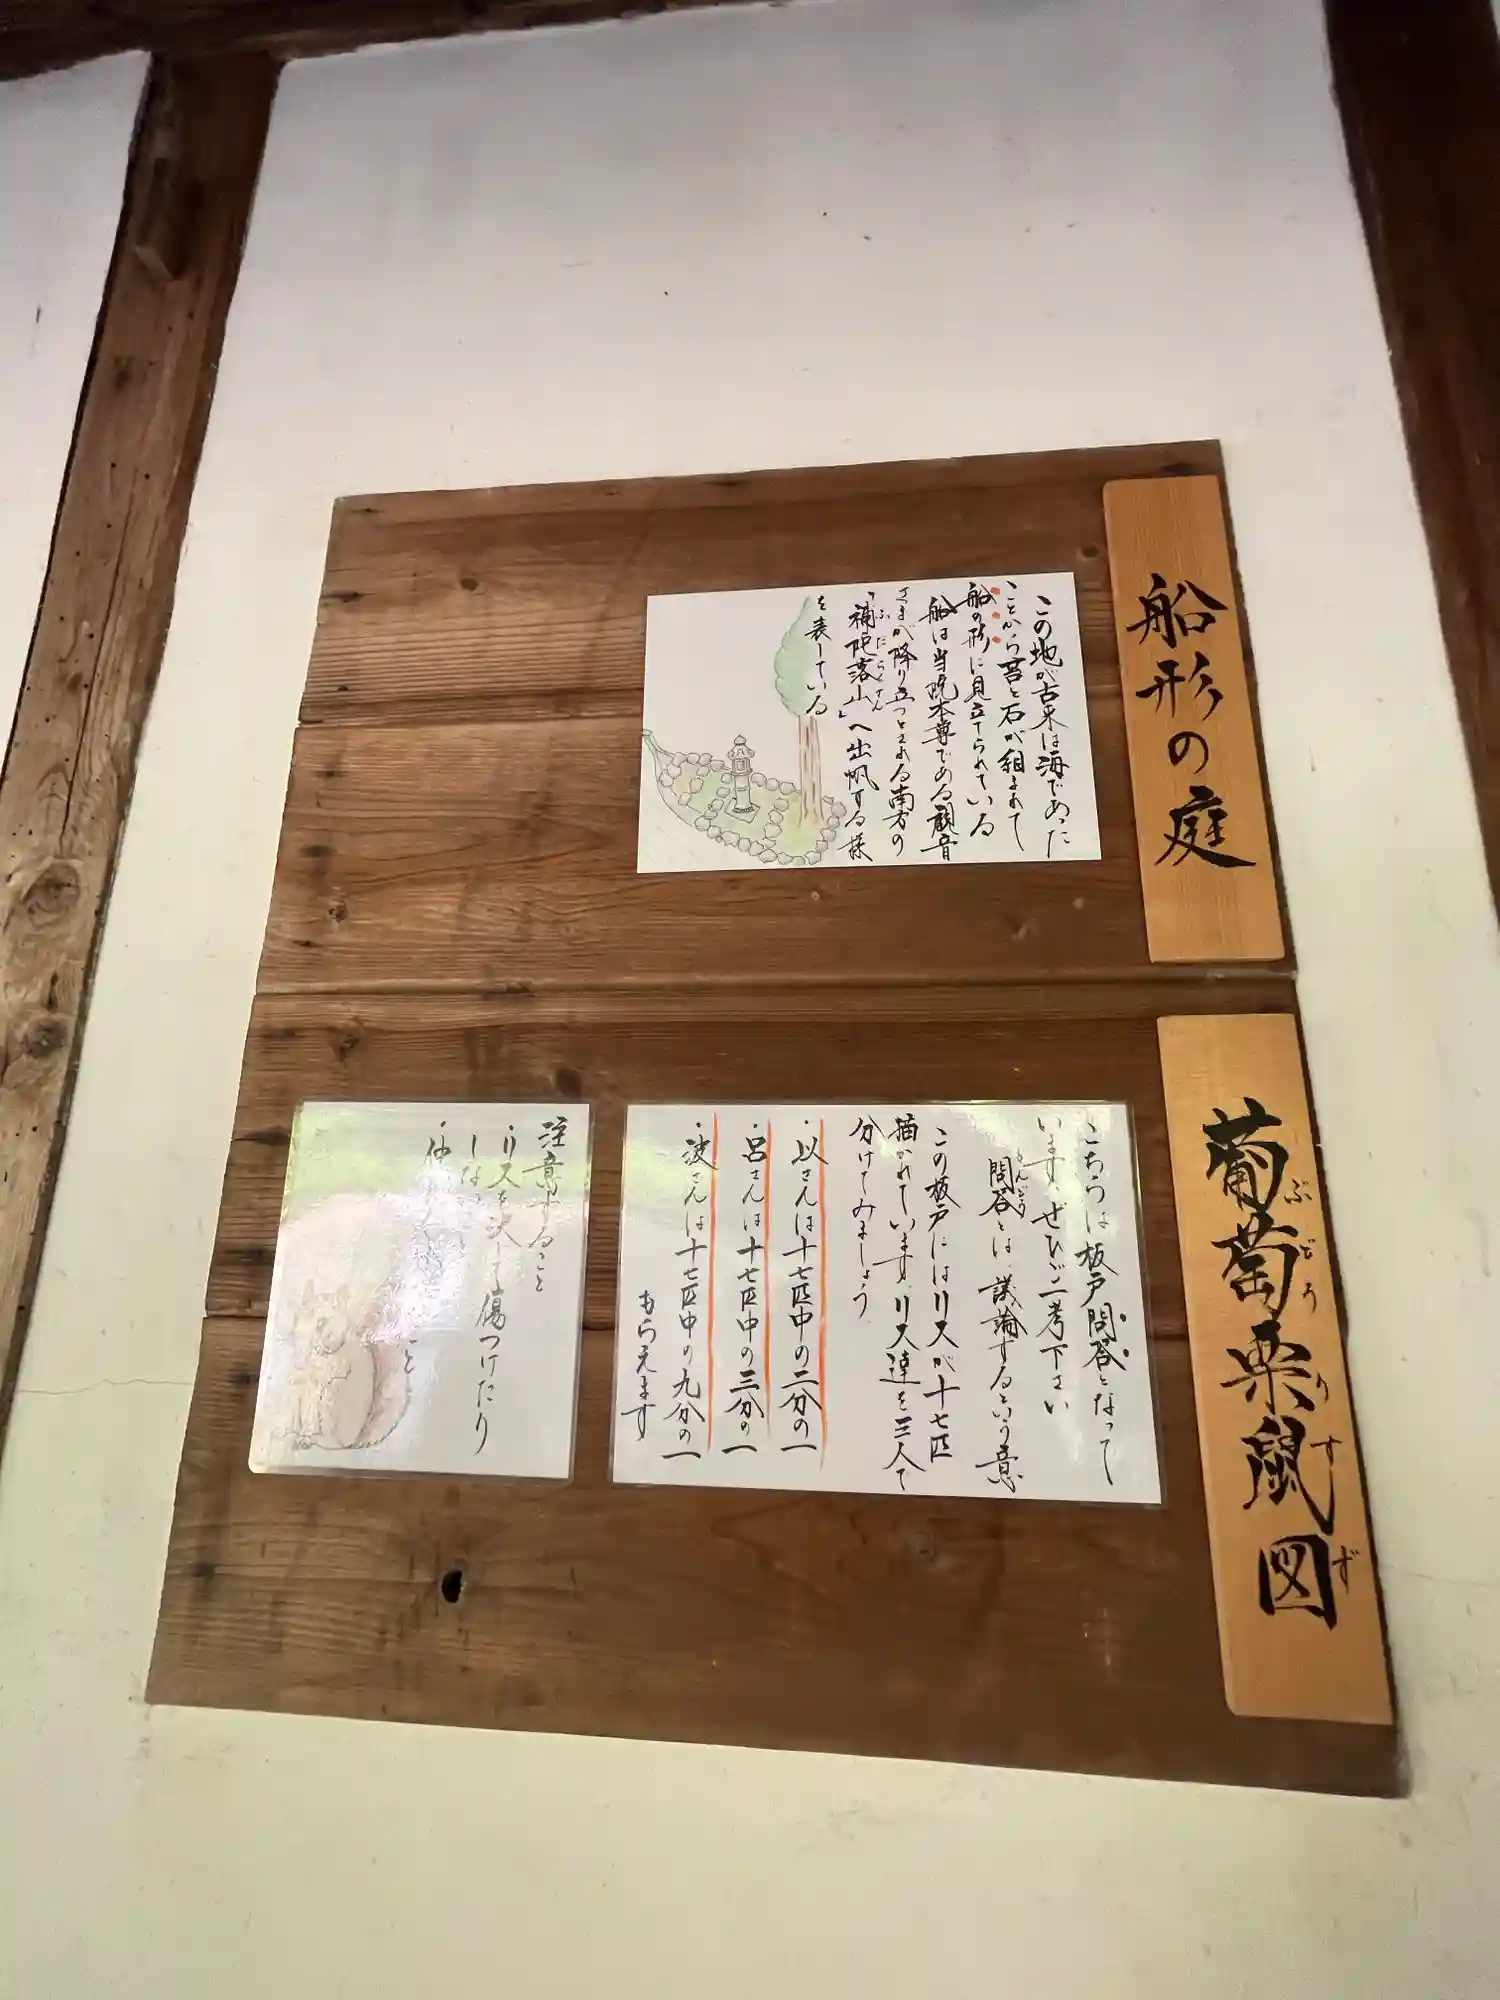 船形の庭
この地が古来は海であった
ことから苔と石が組まれて
船の形に見立てられている
船は当院本尊である観音
さまが降り立つとされる南方の
「補陀落山」へ出帆する様
ふだらくせん
を表している
葡萄栗鼠図
ぶどうりすず
こちらは板戸問答となって
います。ぜひご一考下さい
問答とは、議論するという意
もんどう
この板戸にはリスが十七匹
描かれています。リス達を三人で
分けてみましょう
・以さんは十七匹中の二分の一
・呂さんは十七匹中の三分の一
・波さんは十七匹中の九分の一
もらえます
注意すること
・リスを決して傷つけたり
しな
・仲 こと